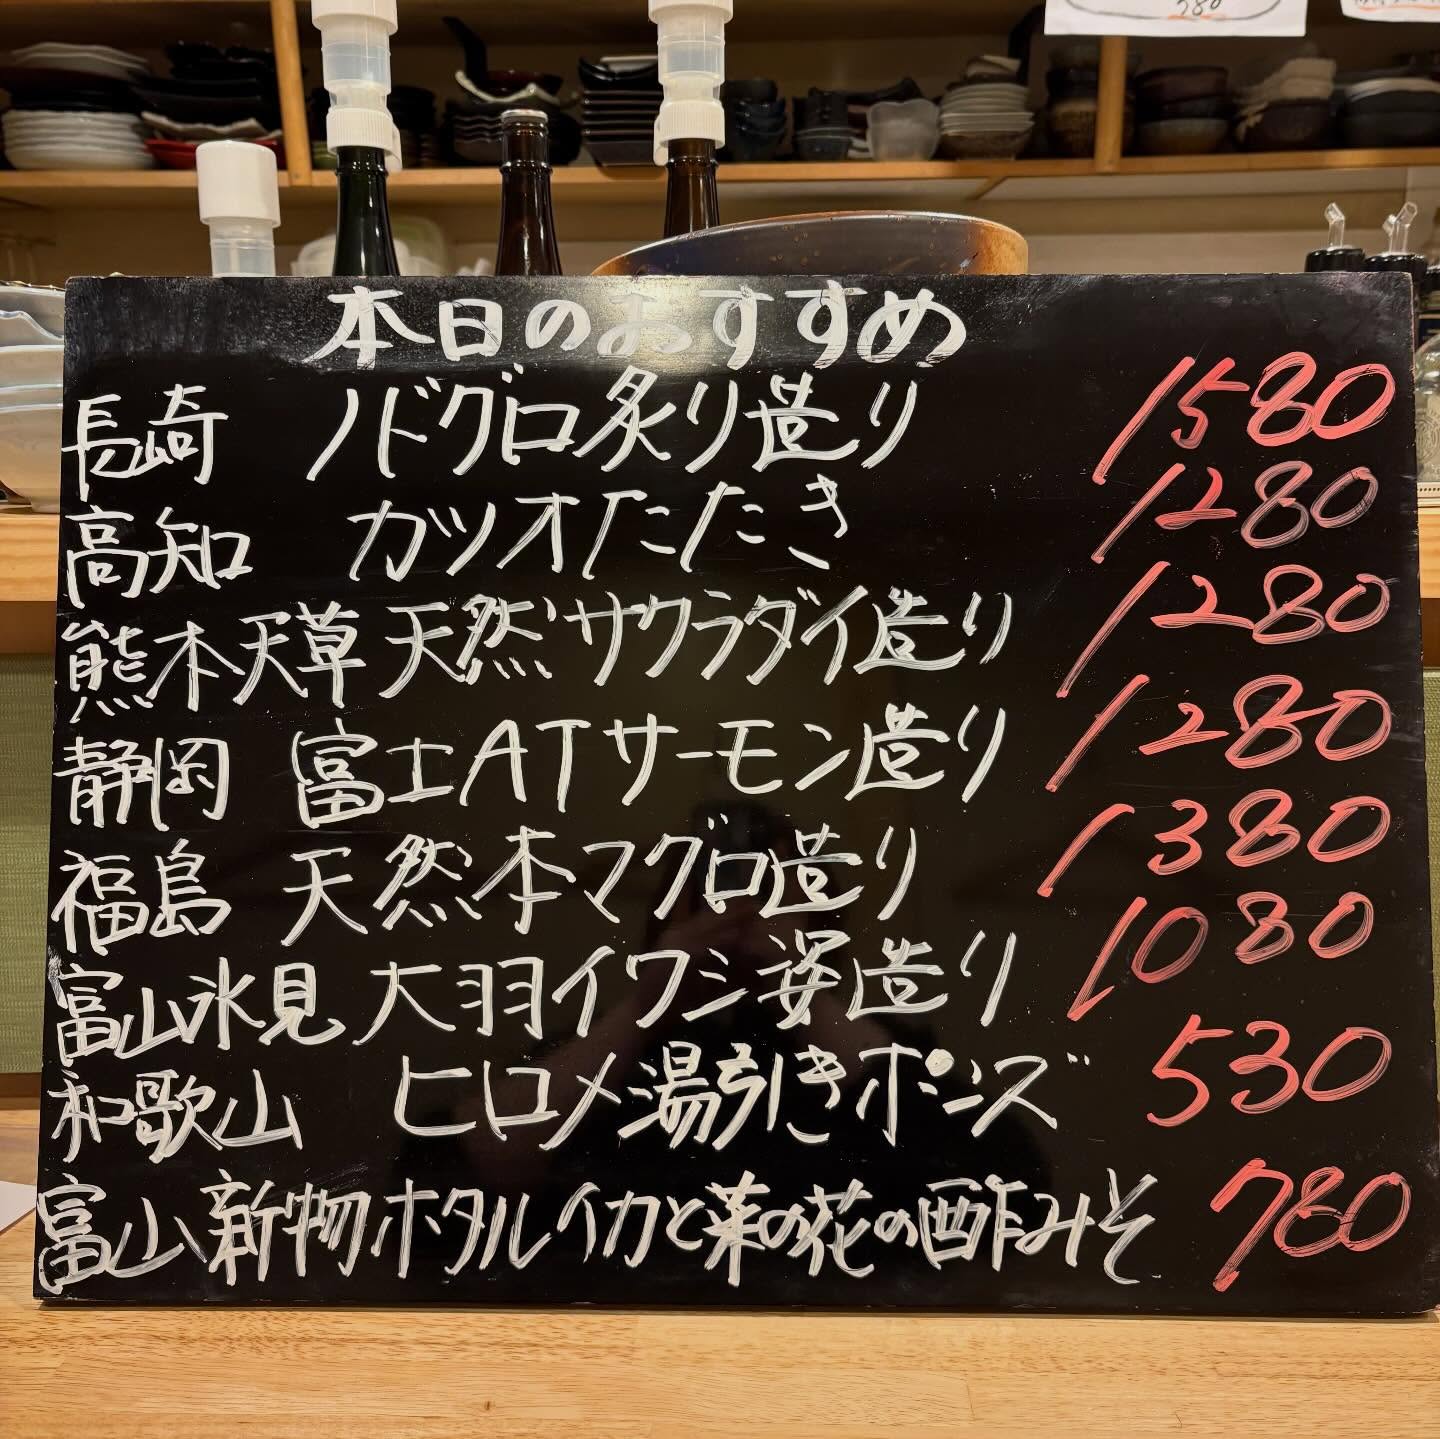 380
本日のおすすめ
長崎 ノドグロ炙り造り 1580
高知 カツオたたき 1280
熊本天草 天然サクラダイ造り 1280
静岡 富士ATサーモン造り 1280
福島 天然本マグロ造り 1380
富山氷見 大羽イワシ姿造り 1080
和歌山 ヒロメ湯引きポンズ 530
富山 新物ホタルイカと菜の花の酢みそ 780